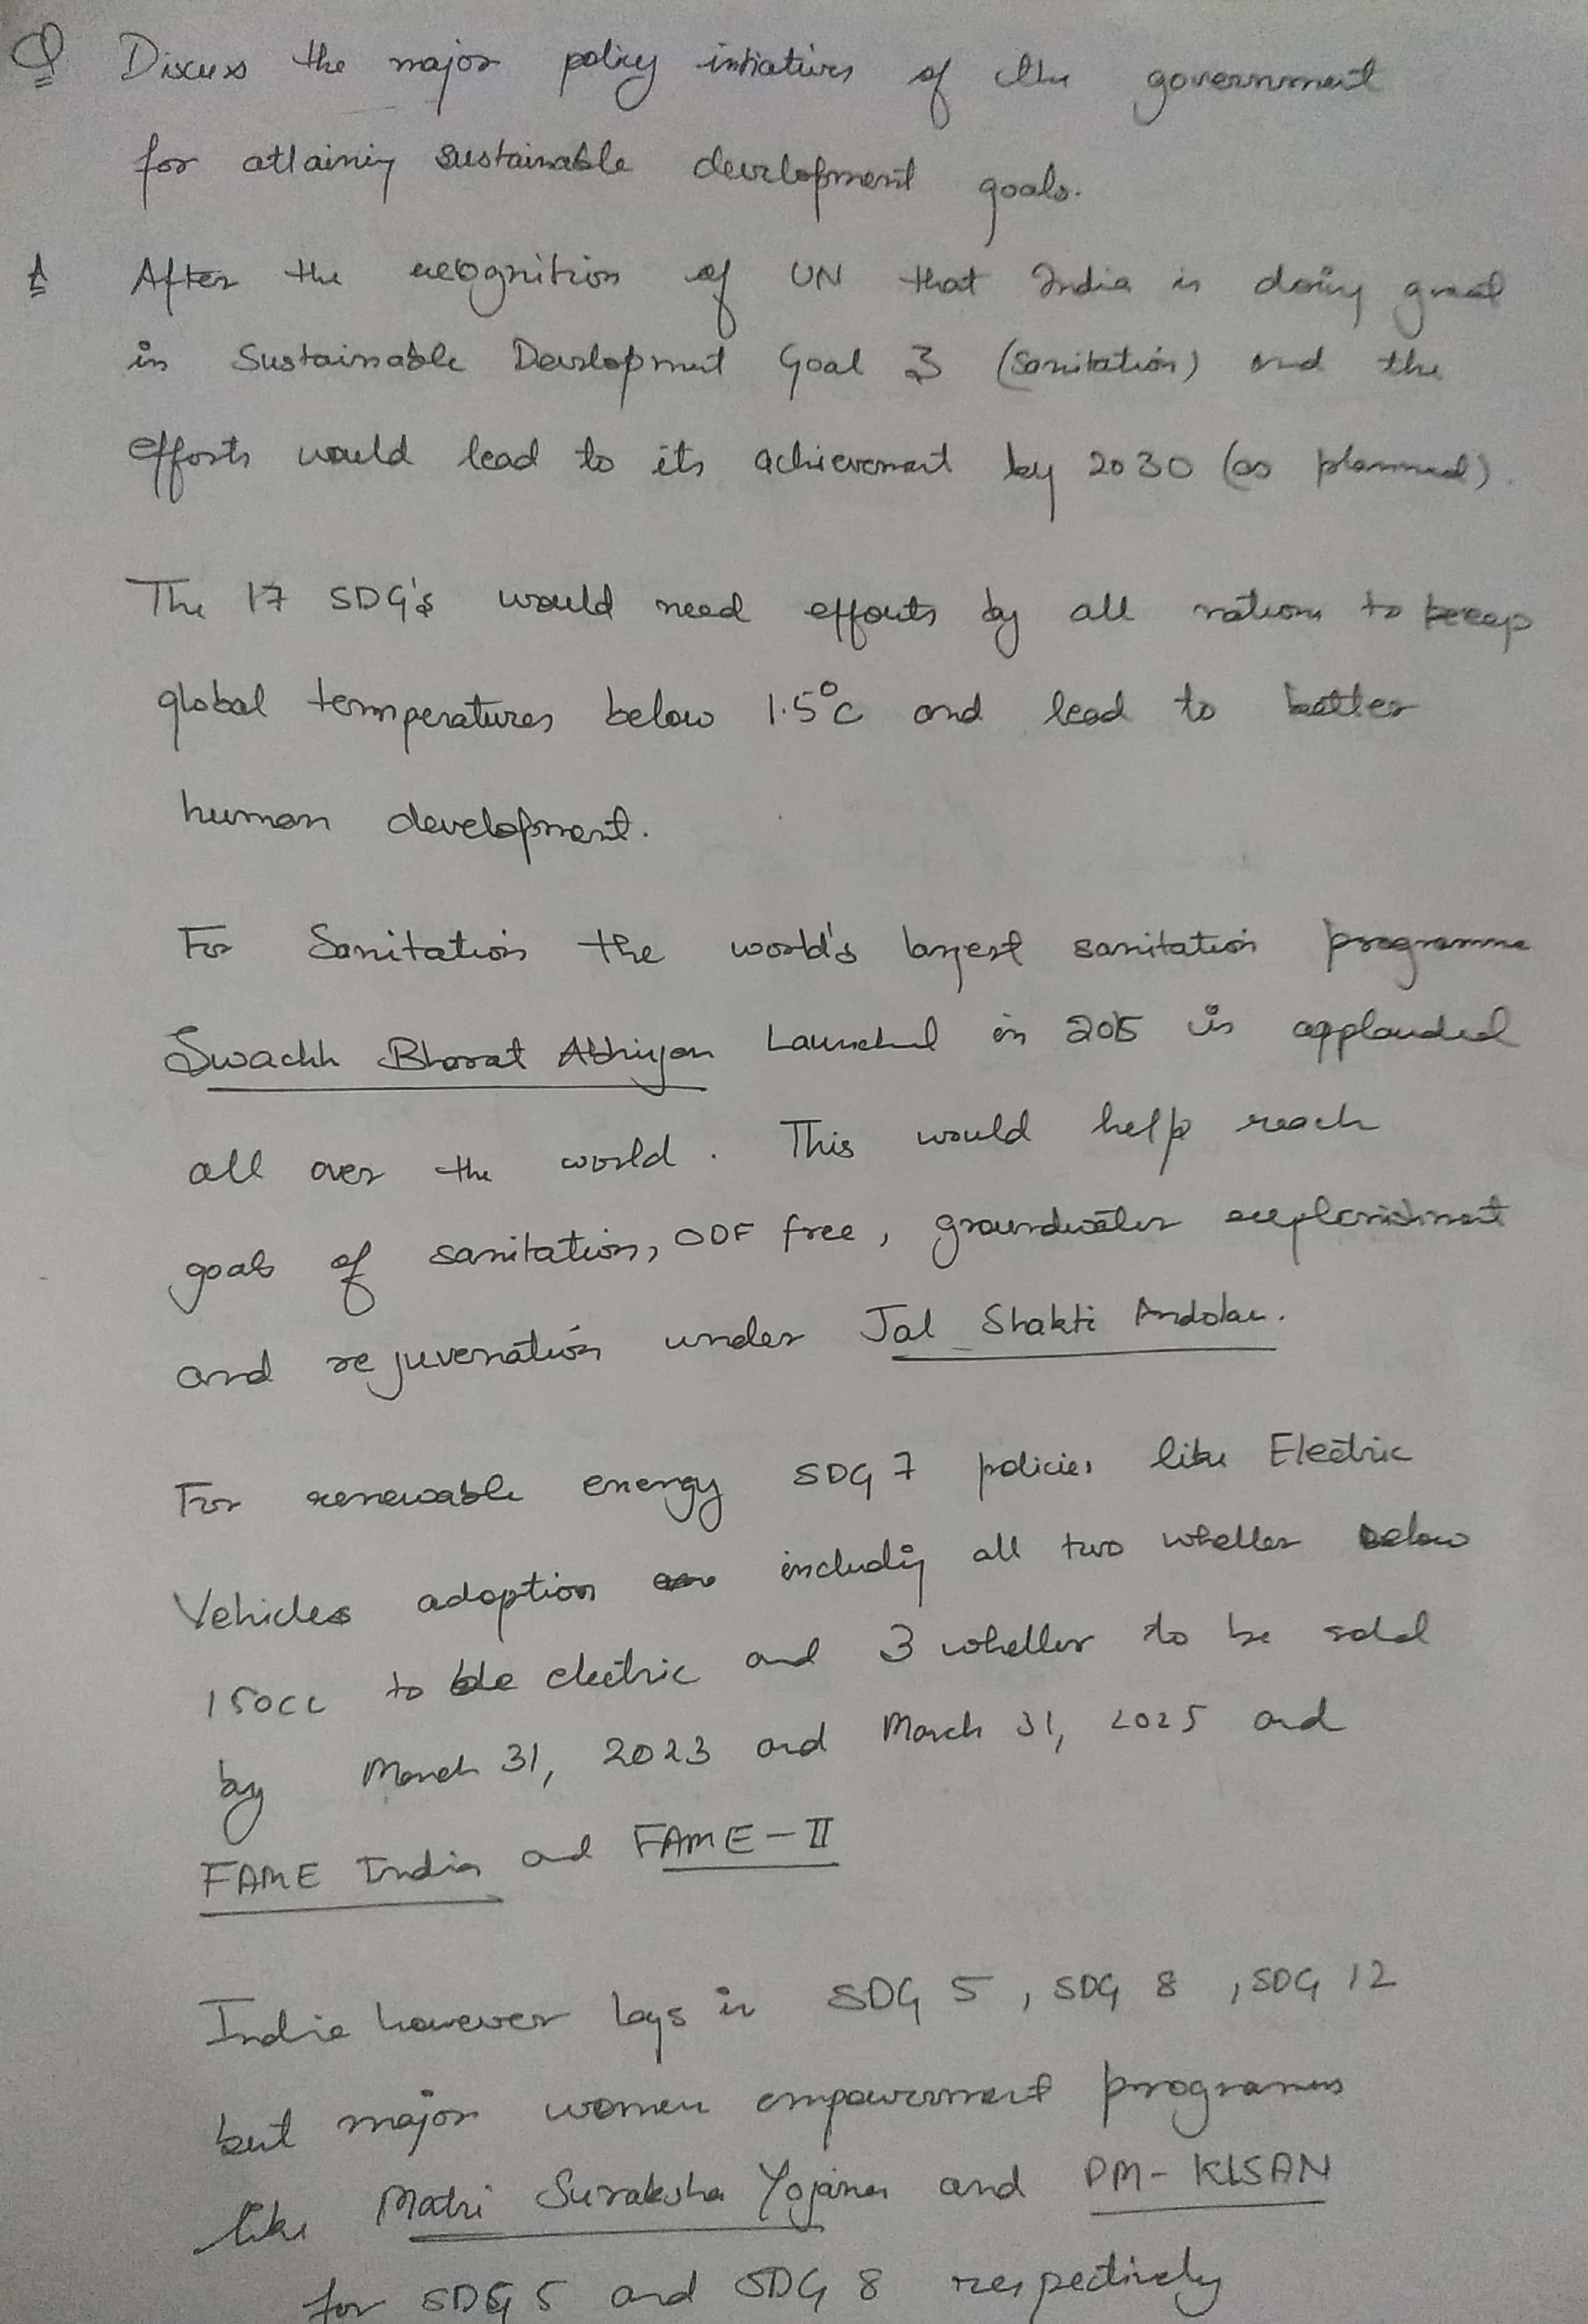 Q Discuss the major policy intiatives of the government
for attaining sustainable development goals.
A After the recognition of UN that India is doing great
in Sustainable Development Goal 3 (Sanitation) and the
efforts would lead to its achievement by 2030 (as planned).
The 17 SDG's would need efforts by all nations to keep
global temperatures below 1.5°C and lead to better
human development.
For Sanitation the world's largest sanitation programme
Swachh Bharat Abhiyan Launched in 2015 is applauded
all over the world. This would help reach
goals of sanitation, ODF free, groundwater replenishment
and rejuvenation under Jal Shakti Andolan.
For renewable energy SDG 7 policies like Electric
Vehicles adoption including all two wheller below
150cc to be electric and 3 wheller to be sold
by March 31, 2023 and March 31, 2025 and
FAME India and FAME-II
India however lags in SDG 5, SDG 8, SDG 12
but major women empowerment programes
like Matri Suraksha Yojana and PM-KISAN
for SDG 5 and SDG 8 respectively